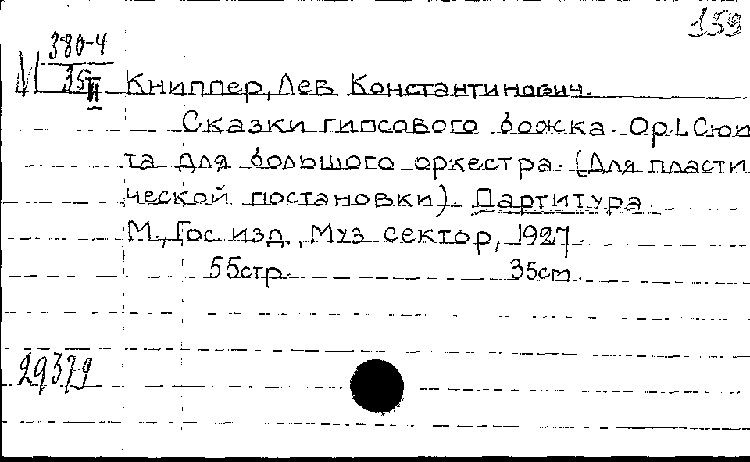 159
М 380-4
35 II
Книппер, Лев Константинович.
Сказки гипсового божка. Op.1. Сюи
та для большого оркестра. (Для пласти
ческой постановки). Партитура.
М., Гос. изд., Муз сектор, 1927
55стр. 35см
29379